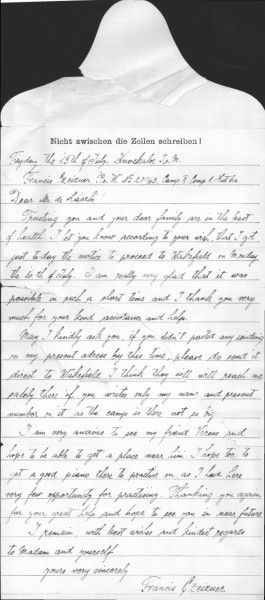 Nicht zwischen die Zeilen schreiben!
Fryday the 13th of July, Knockaloe I.o.M.
Francis Czeizner, P.o.W. No 27963, Camp 4, Comp 1, Hut 6a
Dear Mr. de
Trusting you and your dear family are in the best
of health. I let you know according to your wish that I got
just to-day the notice to proceed to Wakefield on Monday
the 16th of July. I am really very glad that it was
possible in such a short time and I thank you very
much for your kind assistance and help.
May I kindly ask you, if you didn't posted any sending
on my present adress by this time, please do send it
direct to Wakefield. I think they will will reach me
safely there if you writes only my name and present
number on it as the camp is there not so big.
I am very anxious to see my friend and
hope to be able to get a place near him. I hope too, to
get a good piano there to practise on as I had here
very few opportunity for practising. Thanking you again
for your great help and hope to see you in near future
I remain, with best wishes and kindest regards
to Madam and yourself
yours very sincerely
Francis Czeizner